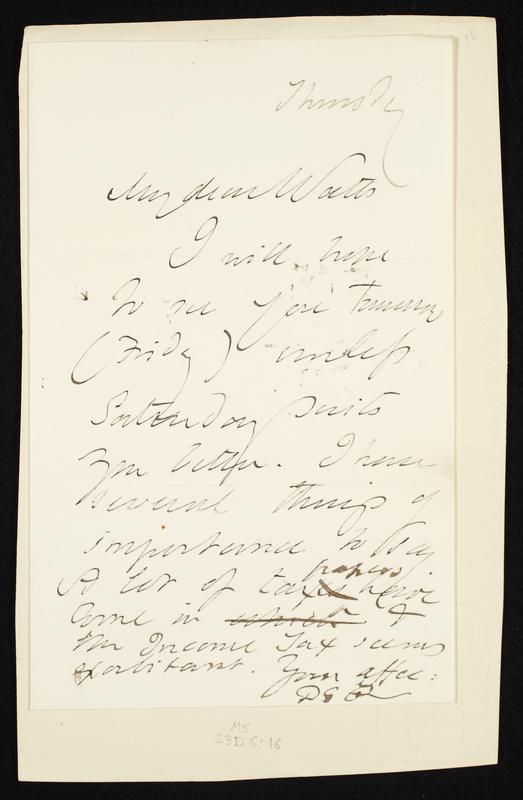 16
Thursday
My dear Watts
I will hope
to see you tomorrow
(Friday) unless
Saturday suits
you better. I have
several things of
importance to say
papers
A lot of tax have
come in which &
the Income Tax seems
exorbitant. Your affec:
DGR
MS
23D6:16